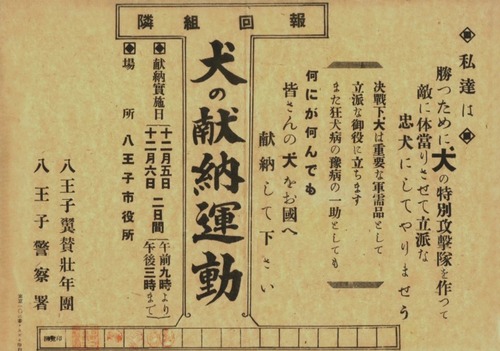 隣組回報
私達は
勝つために、犬の特別攻撃隊を作つて
敵に体當りさせて立派な
忠犬にしてやりませう
決戰下犬は重要な軍需品として
立派な御役に立ちます
また狂犬病の豫病の一助としても
何にが何んでも
皆さんの犬をお國へ
献納して下さい
犬の献納運動
献納實施日 十二月五日 十二月六日 二日間 午前九時より 午後三時まで
場所 八王子市役所
八王子翼賛壯年團
八王子警察署